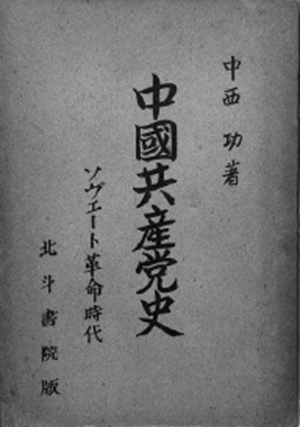 中西功著
中國共産党史
ソヴエート革命時代
北斗書院版